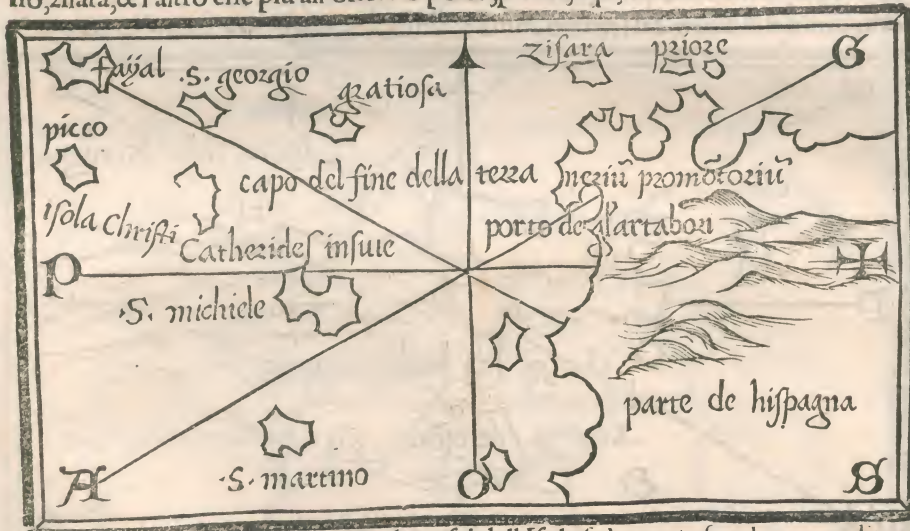 fayal
.S. georgio
gratiosa
zisara
priore
G
picco
capo del fine della terra
neriũ promõtoriũ
isola Christi
Catherides insule
porto de gl artabori
P
.S. michiele
parte de hispagna
A
.S. martino
O
S